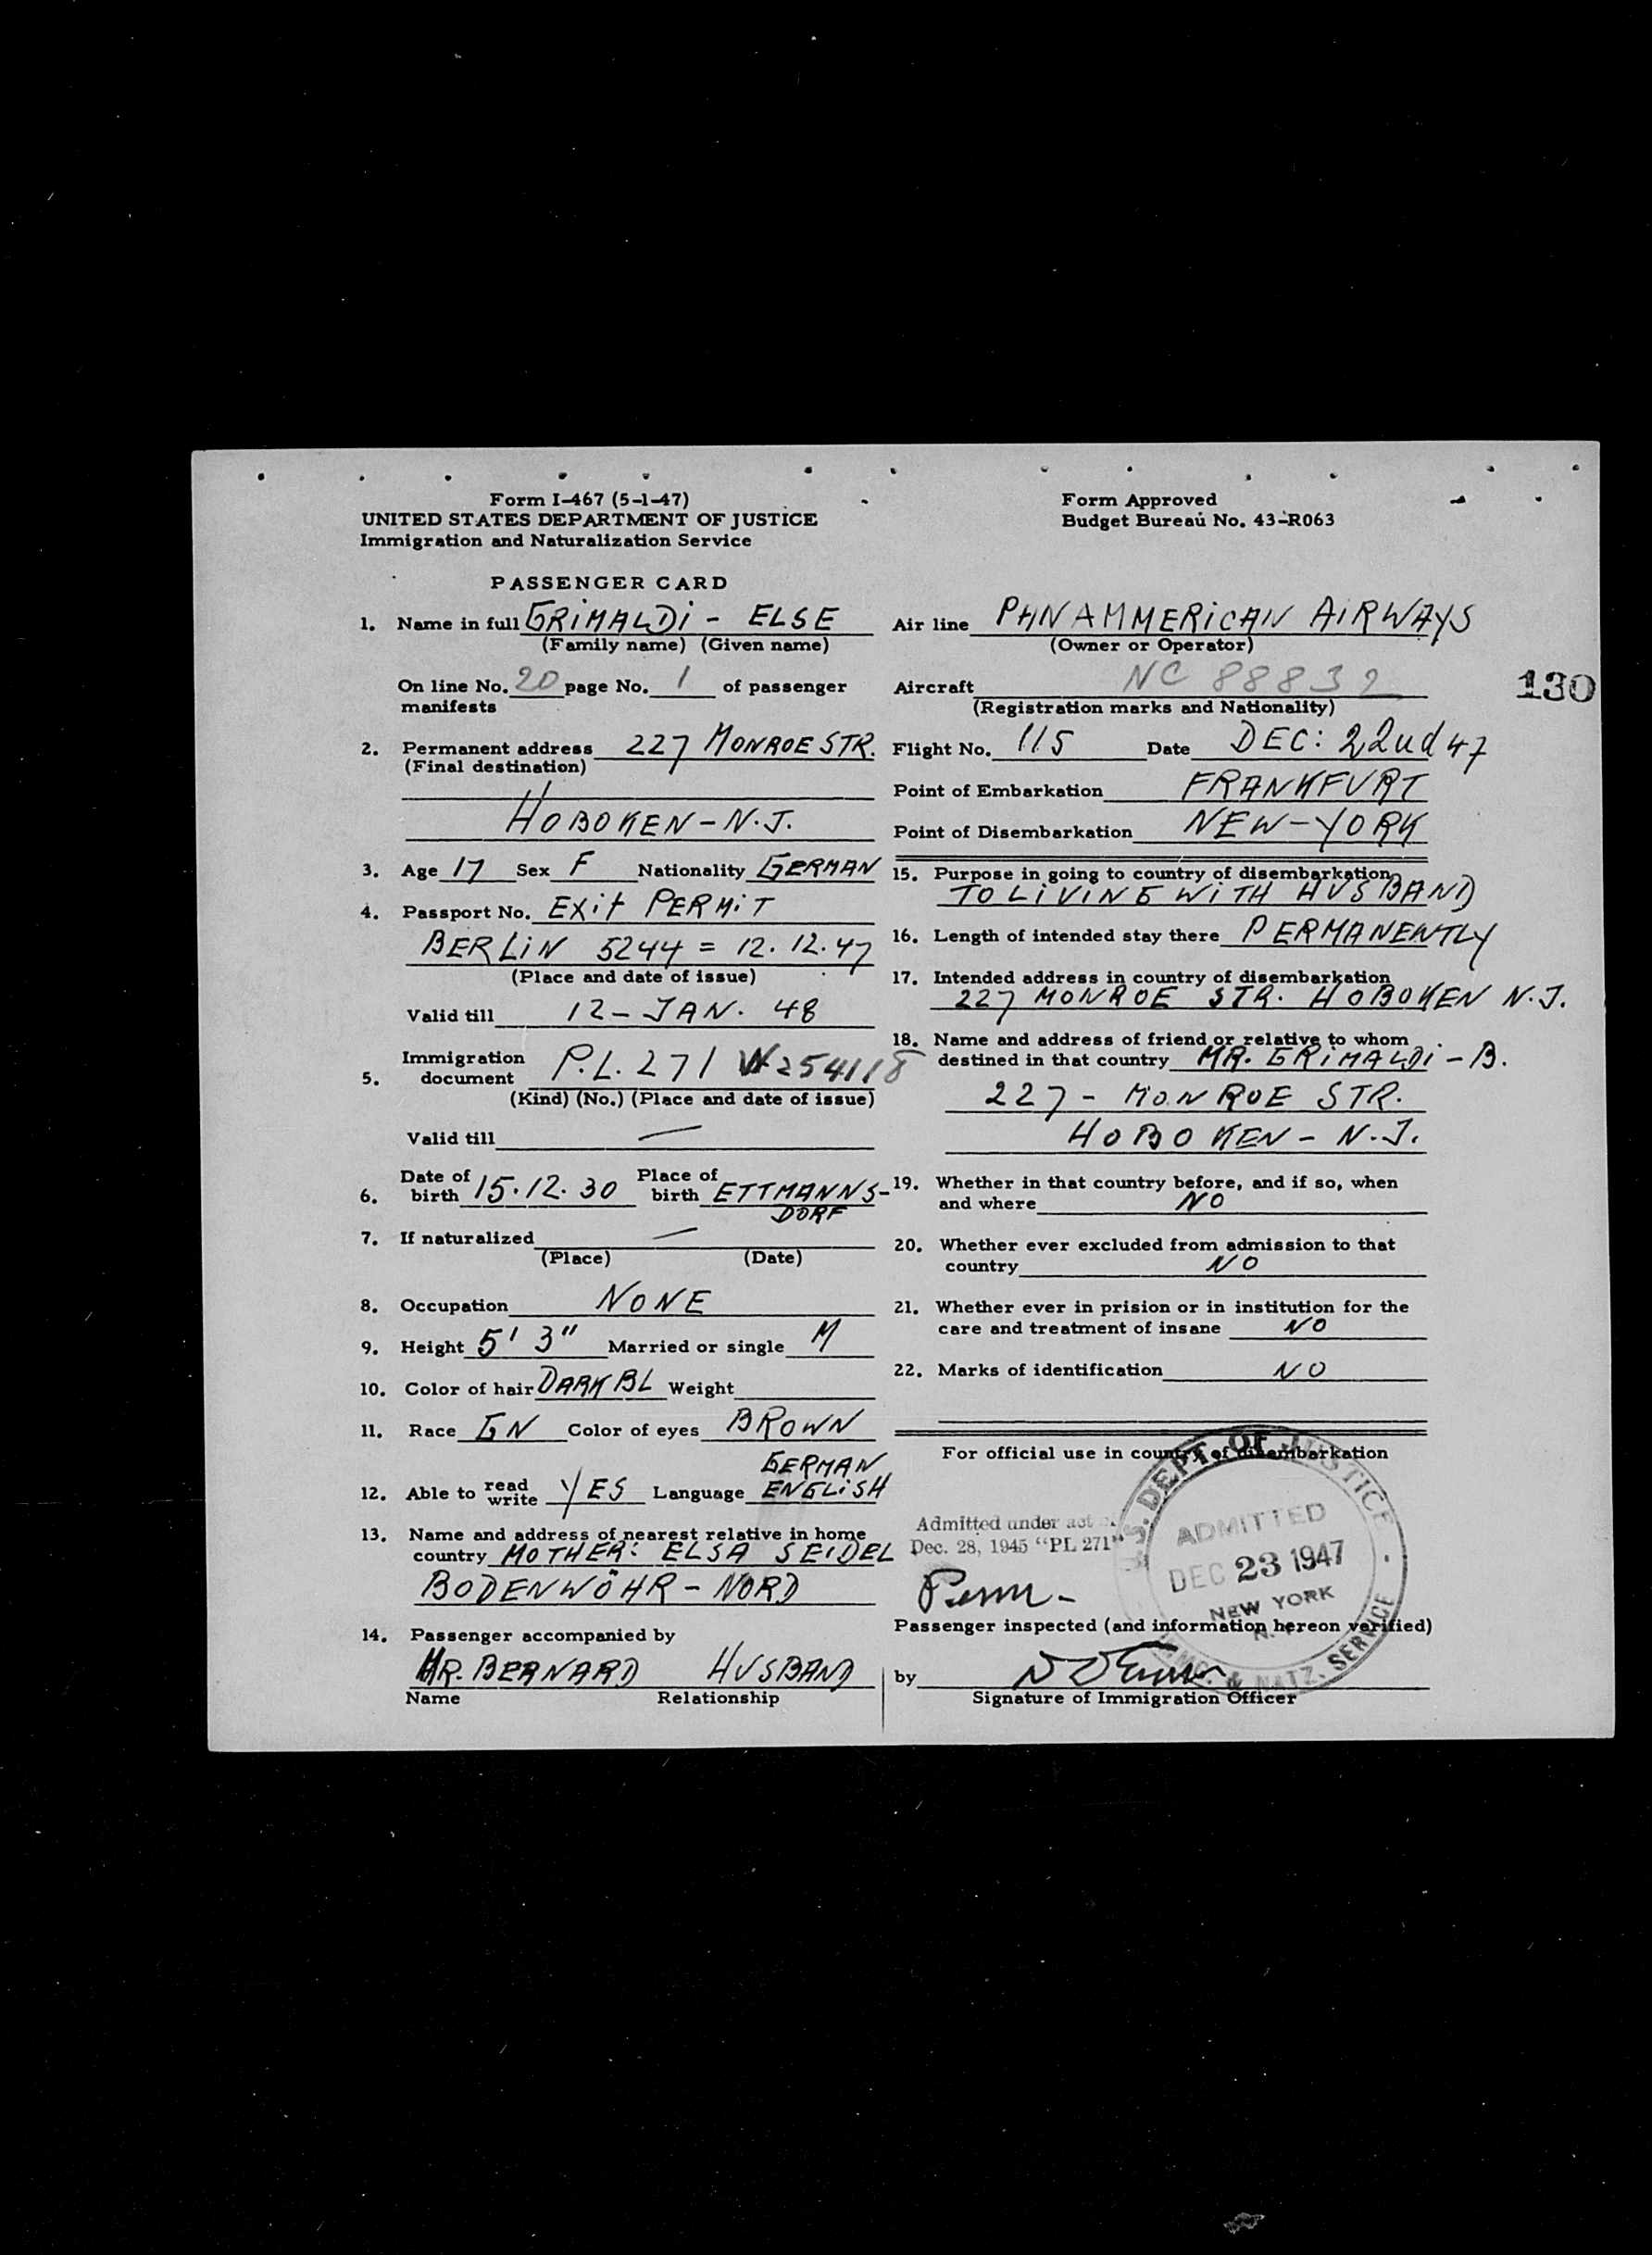 Form I-467 (5-1-47)
UNITED STATES DEPARTMENT OF JUSTICE
Immigration and Naturalization Service
Form Approved
Budget Bureau No. 43-R063
PASSENGER CARD
1. Name in full GRIMALDI - ELSE
(Family name) (Given name)
On line No. 20 page No. 1 of passenger
manifests
2. Permanent address 227 MONROE STR.
(Final destination)
HOBOKEN - N.J.
3. Age 17 Sex F Nationality GERMAN
4. Passport No. EXit PERMiT
BERLiN 5244 = 12.12.47
(Place and date of issue)
Valid till 12 - JAN. 48
Immigration
5. document P.L. 271 W254118
(Kind) (No.) (Place and date of issue)
Valid till —
6. Date of birth 15.12.30 Place of birth ETTMANNS-
DORF
7. If naturalized —
(Place) (Date)
8. Occupation NONE
9. Height 5' 3" Married or single M
10. Color of hair DARK BL Weight
11. Race GN Color of eyes BROWN
GERMAN
12. Able to read write YES Language ENGLiSH
13. Name and address of nearest relative in home
country MOTHER: ELSA SEIDEL
BODENWÖHR - NORD
14. Passenger accompanied by
MR. BERNARD HUSBAND
Name Relationship
Air line PANAMMERiCAN AiRWAYS
(Owner or Operator)
Aircraft NC 88832
(Registration marks and Nationality)
130
Flight No. 115 Date DEC: 22nd 47
Point of Embarkation FRANKFURT
Point of Disembarkation NEW-YORK
15. Purpose in going to country of disembarkation
TO LiViNG WiTH HUSBAND
16. Length of intended stay there PERMANENTLY
17. Intended address in country of disembarkation
227 MONROE STR. HOBOKEN N.J.
18. Name and address of friend or relative to whom
destined in that country MR. GRiMALDi - B.
227 - MONROE STR.
HOBOKEN - N.J.
19. Whether in that country before, and if so, when
and where NO
20. Whether ever excluded from admission to that
country NO
21. Whether ever in prision or in institution for the
care and treatment of insane NO
22. Marks of identification NO
For official use in country of disembarkation
Admitted under act
Dec. 28, 1945 "PL 271"
Perm -
U.S. DEPT. OF JUSTICE
ADMITTED
DEC 23 1947
NEW YORK
N.Y.
IMMG. & NATZ. SERVICE
Passenger inspected (and information hereon verified)
by
Signature of Immigration Officer